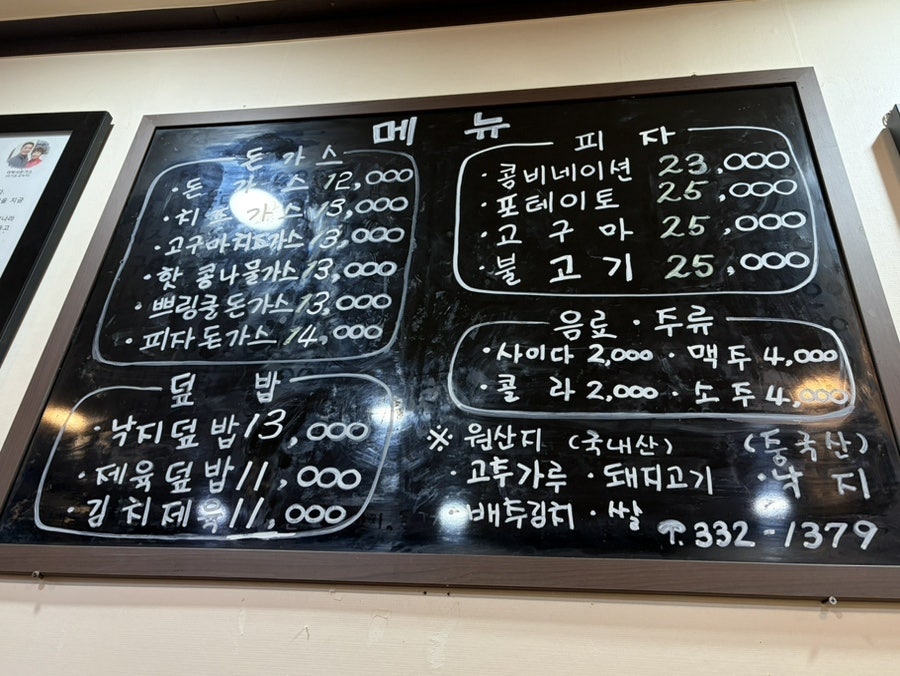 메뉴
돈가스
·돈가스 12,000
·치즈가스 13,000
·고구마치즈가스 13,000
·핫콩나물가스 13,000
·쁘링클돈가스 13,000
·피자돈가스 14,000
덮밥
·낙지덮밥 13,000
·제육덮밥 11,000
·김치제육 11,000
피자
·콤비네이션 23,000
·포테이토 25,000
·고구마 25,000
·불고기 25,000
음료·주류
·사이다 2,000 ·맥주 4,000
·콜라 2,000 ·소주 4,000
※ 원산지 (국내산) (중국산)
·고추가루 ·돼지고기 ·낙지
·배추김치 ·쌀
☎.332-1379